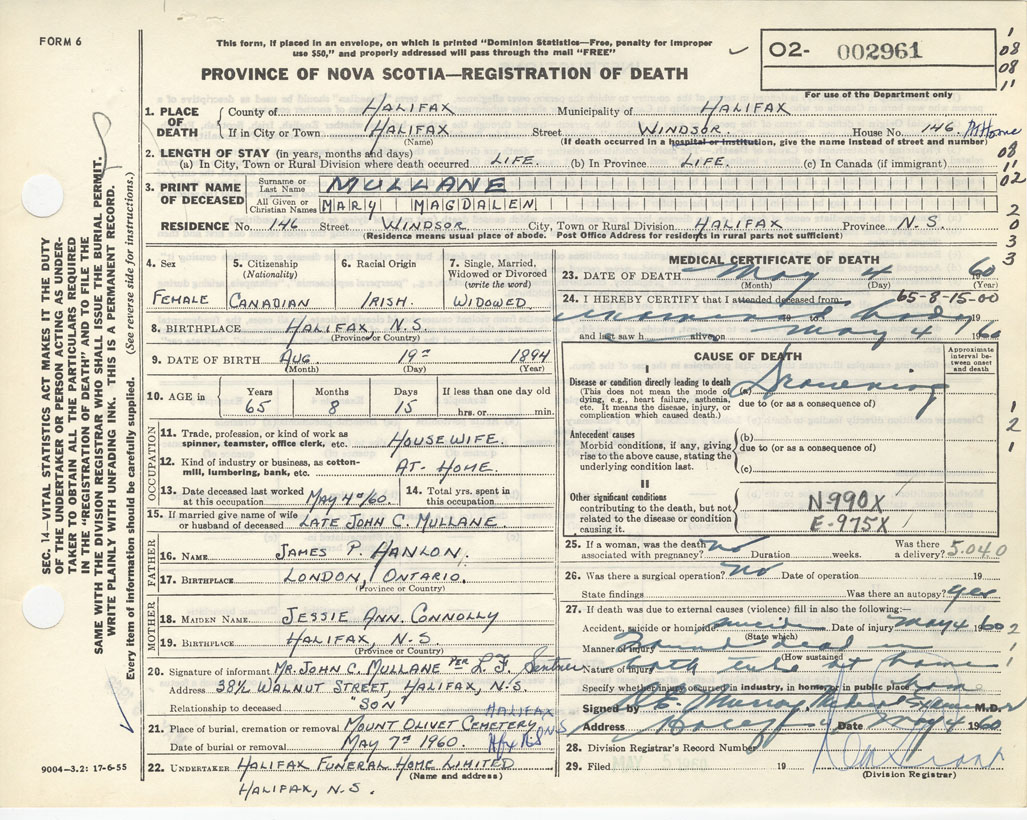 FORM 6
This form, if placed in an envelope, on which is printed "Dominion Statistics—Free, penalty for improper
use $50," and properly addressed will pass through the mail "FREE"
O2- 002961
For use of the Department only
PROVINCE OF NOVA SCOTIA—REGISTRATION OF DEATH
1. PLACE OF DEATH
County of HALIFAX Municipality of HALIFAX
If in City or Town HALIFAX Street WINDSOR. House No. 146. At Home
(Name) (If death occurred in a hospital or institution, give the name instead of street and number)
2. LENGTH OF STAY (in years, months and days)
(a) In City, Town or Rural Division where death occurred LIFE. (b) In Province LIFE. (c) In Canada (if immigrant)
3. PRINT NAME OF DECEASED
Surname or Last Name MULLANE
All Given or Christian Names MARY MAGDALEN
RESIDENCE No. 146 Street WINDSOR City, Town or Rural Division HALIFAX Province N.S.
(Residence means usual place of abode. Post Office Address for residents in rural parts not sufficient)
4. Sex FEMALE
5. Citizenship (Nationality) CANADIAN
6. Racial Origin IRISH.
7. Single, Married, Widowed or Divorced (write the word) WIDOWED
8. BIRTHPLACE HALIFAX, N.S.
(Province or Country)
9. DATE OF BIRTH AUG 19TH 1894
(Month) (Day) (Year)
10. AGE in Years 65 Months 8 Days 15 If less than one day old hrs. or min.
OCCUPATION
11. Trade, profession, or kind of work as spinner, teamster, office clerk, etc. HOUSEWIFE.
12. Kind of industry or business, as cotton-mill, lumbering, bank, etc. AT-HOME.
13. Date deceased last worked at this occupation MAY 4TH/60.
14. Total yrs. spent in this occupation
15. If married give name of wife or husband of deceased LATE JOHN C. MULLANE.
FATHER
16. NAME JAMES P. HANLON.
17. BIRTHPLACE LONDON, ONTARIO.
(Province or Country)
MOTHER
18. MAIDEN NAME JESSIE ANN. CONNOLLY
19. BIRTHPLACE HALIFAX, N.S.
(Province or Country)
20. Signature of informant MR. JOHN C. MULLANE PER L.F.
Address 38½ WALNUT STREET, HALIFAX, N.S.
Relationship to deceased "SON"
HALIFAX N.S
21. Place of burial, cremation or removal MOUNT OLIVET CEMETERY
Date of burial or removal MAY 7TH 1960.
22. UNDERTAKER HALIFAX FUNERAL HOME LIMITED
(Name and address)
HALIFAX, N.S.
9004—3.2: 17-6-55
MEDICAL CERTIFICATE OF DEATH
23. DATE OF DEATH May 4 60
(Month) (Day) (Year)
24. I HEREBY CERTIFY that I attended deceased from: 65-8-15-00
examined body 19
and last saw h alive on May 4 1960
CAUSE OF DEATH
Approximate interval between onset and death
I
Disease or condition directly leading to death
(This does not mean the mode of dying, e.g., heart failure, asthenia, etc. It means the disease, injury, or complication which caused death.)
(a) Drowning
due to (or as a consequence of)
Antecedent causes
Morbid conditions, if any, giving rise to the above cause, stating the underlying condition last.
(b)
due to (or as a consequence of)
(c)
II
Other significant conditions
contributing to the death, but not related to the disease or condition causing it.
N-990X
E-975X
25. If a woman, was the death associated with pregnancy? No Duration weeks. Was there a delivery? 5.040
26. Was there a surgical operation? No Date of operation 19
State findings Was there an autopsy? yes
27. If death was due to external causes (violence) fill in also the following:—
Accident, suicide or homicide suicide Date of injury May 4 1960
(State which)
Manner of injury Found dead in
(How sustained)
Nature of injury bath tub at home
Specify whether injury occurred in industry, in home, or in public place home
Signed by Murray Medical Examiner M.D.
Address Halifax Date May 4 1960
28. Division Registrar's Record Number
29. Filed MAY 5 1960 19
(Division Registrar)
SEC. 14—VITAL STATISTICS ACT MAKES IT THE DUTY
OF THE UNDERTAKER OR PERSON ACTING AS UNDER-
TAKER TO OBTAIN ALL THE PARTICULARS REQUIRED
IN THE "REGISTRATION OF DEATH" AND TO FILE THE
SAME WITH THE DIVISION REGISTRAR WHO SHALL ISSUE THE BURIAL PERMIT.
WRITE PLAINLY WITH UNFADING INK. THIS IS A PERMANENT RECORD.
Every item of information should be carefully supplied. (See reverse side for instructions.)